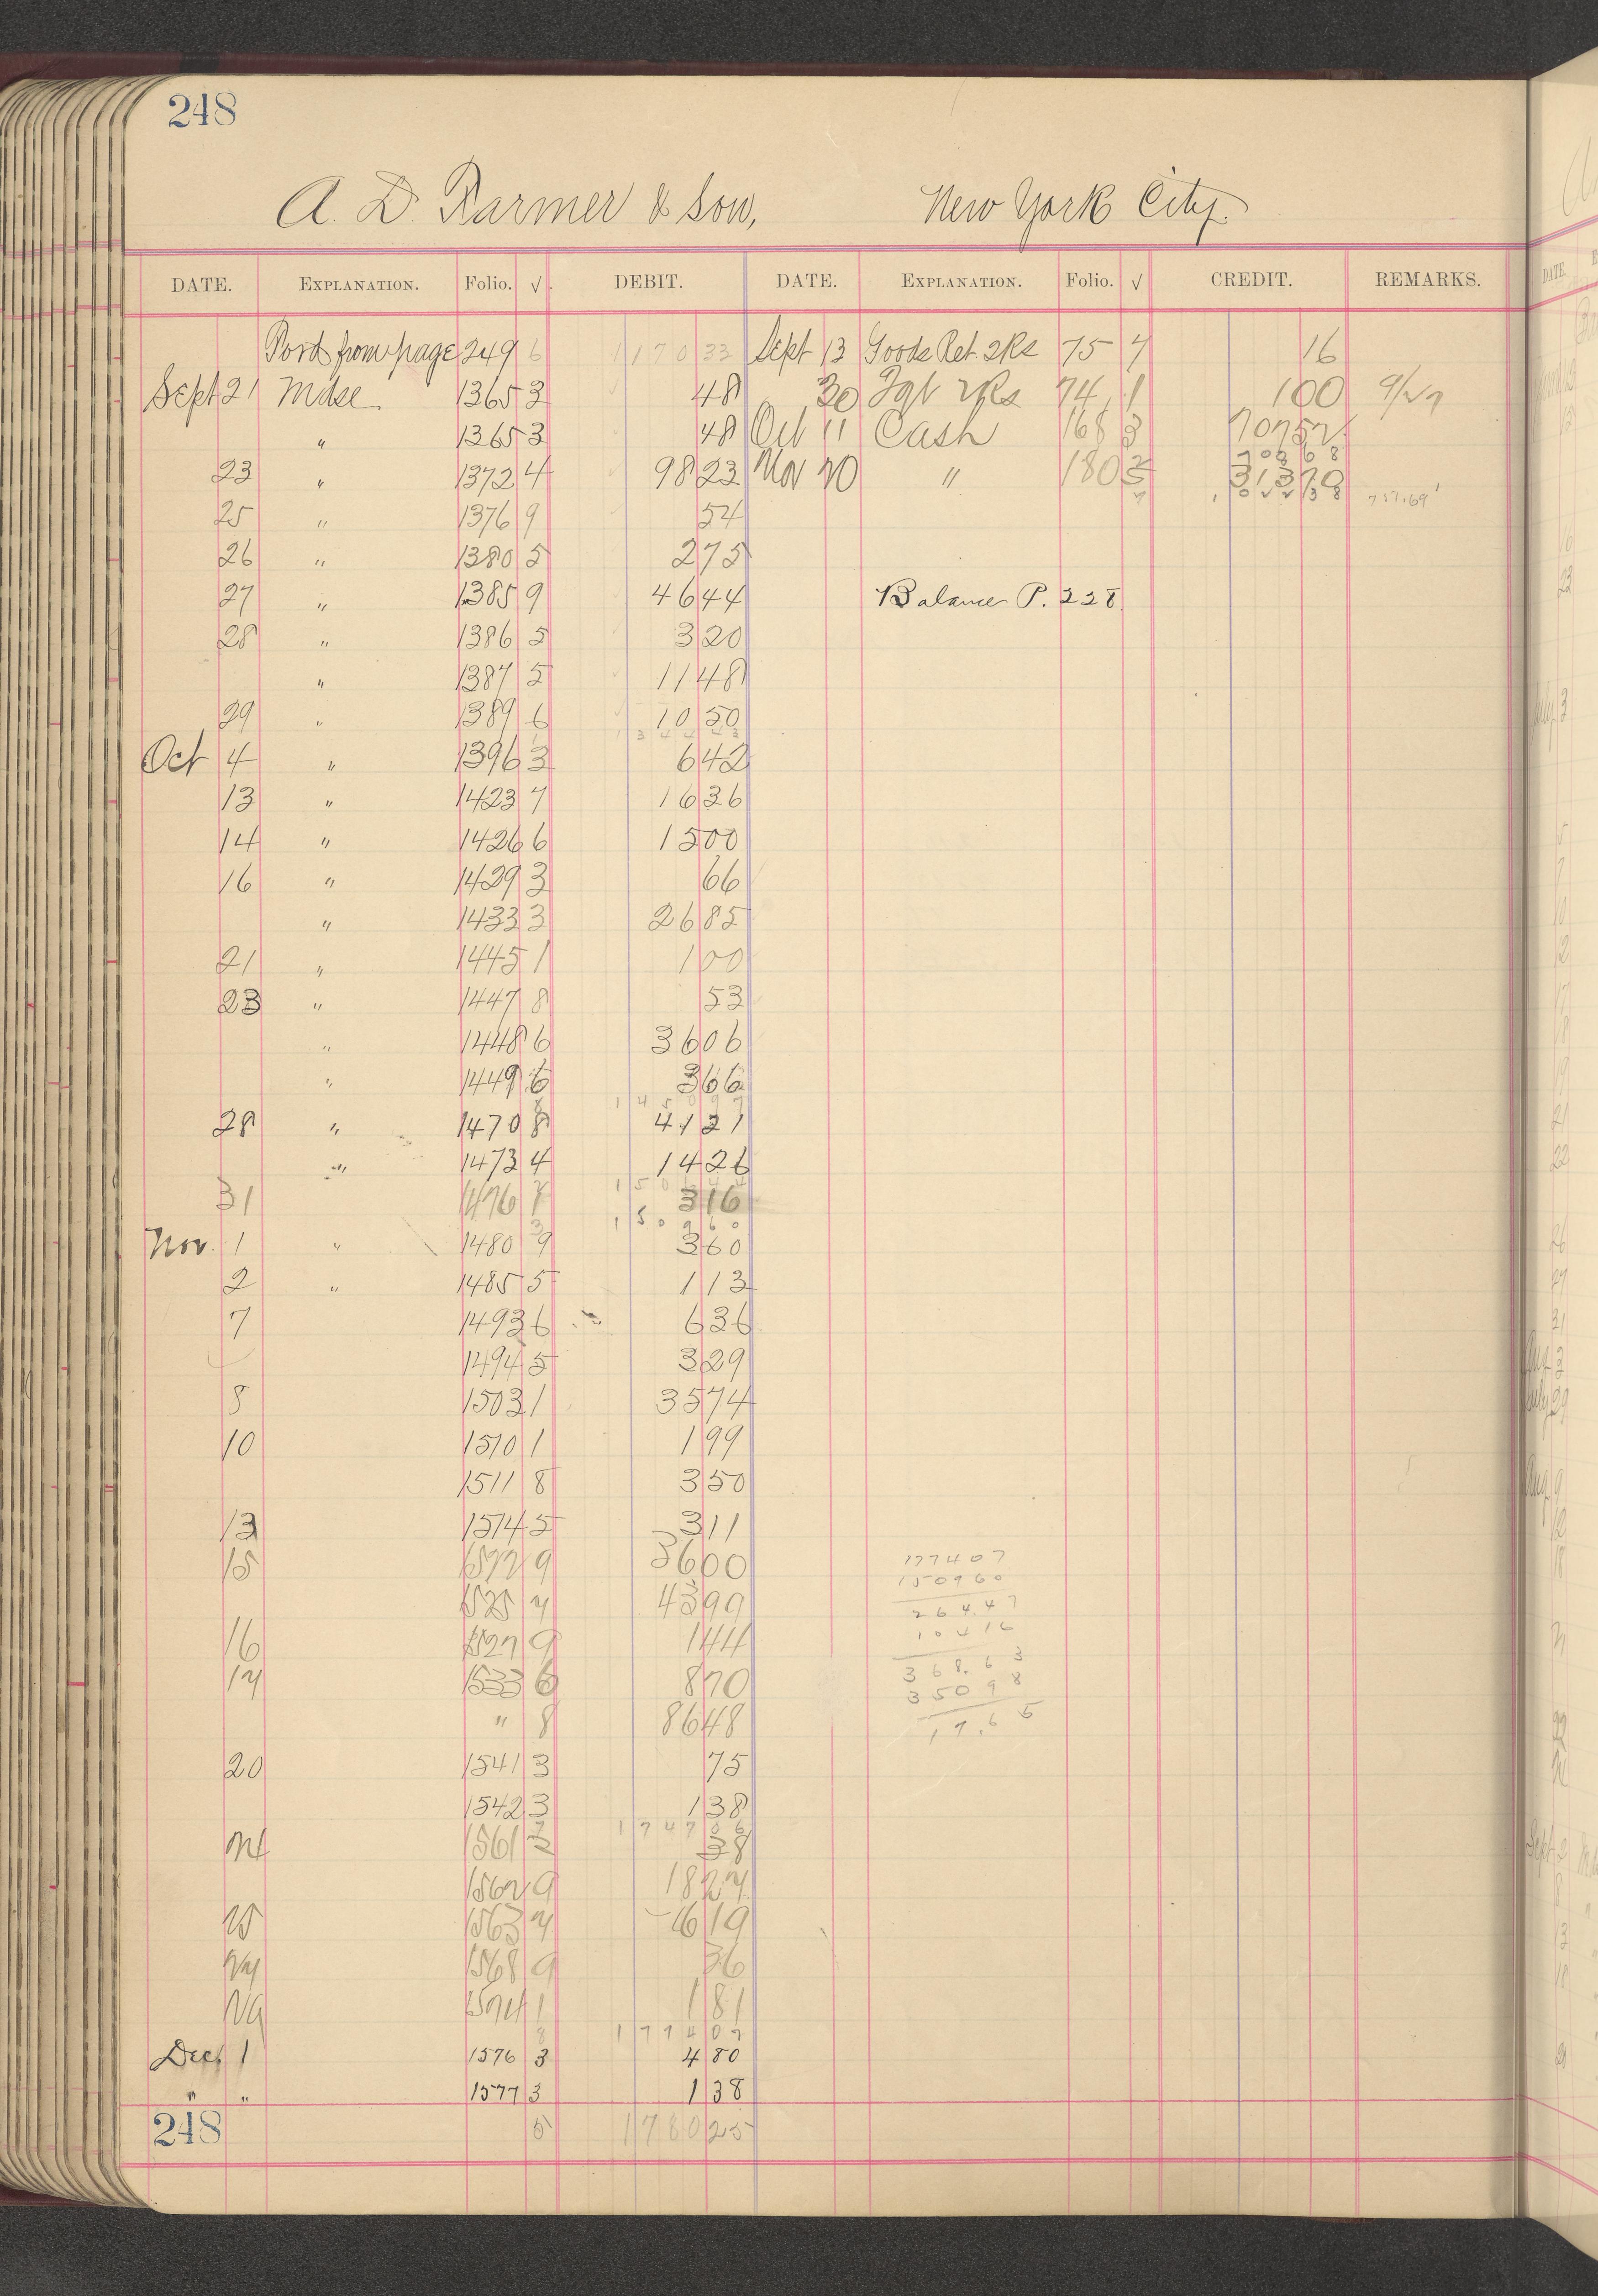 248
A. D. Farmer & Son, New York City.
DATE. EXPLANATION. Folio. √. DEBIT. DATE. EXPLANATION. Folio. √ CREDIT. REMARKS.
Ford from page 249 6 1170 33 Sept 13 Goods Ret. 2Rs 75 7 16
Sept 21 Mdse 1365 3 48 30 2Rs 74 1 1 00
" 1365 3 48 Oct 11 Cash 168 3 707 52
708 68
23 " 1372 4 98 23 Nov 20 " 180 313 70
1022 38 757.69
25 " 1376 9 54
26 " 1380 5 2 75
27 " 1385 9 46 44 Balance P. 228
28 " 1386 5 3 20
" 1387 5 11 48
29 " 1389 6 10 50
Oct 4 " 1396 3 6 42
13 " 1423 7 16 36
14 " 1426 6 15 00
16 " 1429 3 66
" 1433 3 26 85
21 " 1445 1 1 00
23 " 1447 8 53
" 1448 6 36 06
" 1449 6 3 66
28 " 1470 8 41 21
" 1473 4 14 26
31 1476 7 3 16
1 5 0 9 6 0
Nov. 1 " 1480 9 3 60
2 " 1485 5 1 13
7 1493 6 6 36
1494 5 3 29
8 1503 1 35 74
10 1510 1 1 99
1511 8 3 50
13 1514 5 3 11
15 1522 9 36 00
177407
150960
1525 7 43 99
264.47
16 1527 9 1 44
10416
17 1533 6 8 70
368.63
35098
" 8 86 48
17.65
20 1541 3 75
1542 3 1 38
1 7 4 7 0 6
24 1561 38
1562 9 18 27
25 1563 7 6 19
27 1568 9 36
29 1574 1 1 81
8 1 7 7 4 0 7
Dec 1 1576 3 4 80
" " 1577 3 1 38
248 5 1780 25